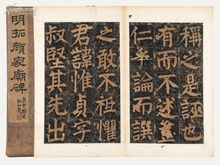 明拓顏家廟碑
稱之是誣也
有而不述豈
仁乎論而譔
之敢不祗懼
君諱惟貞字
叔堅其先出